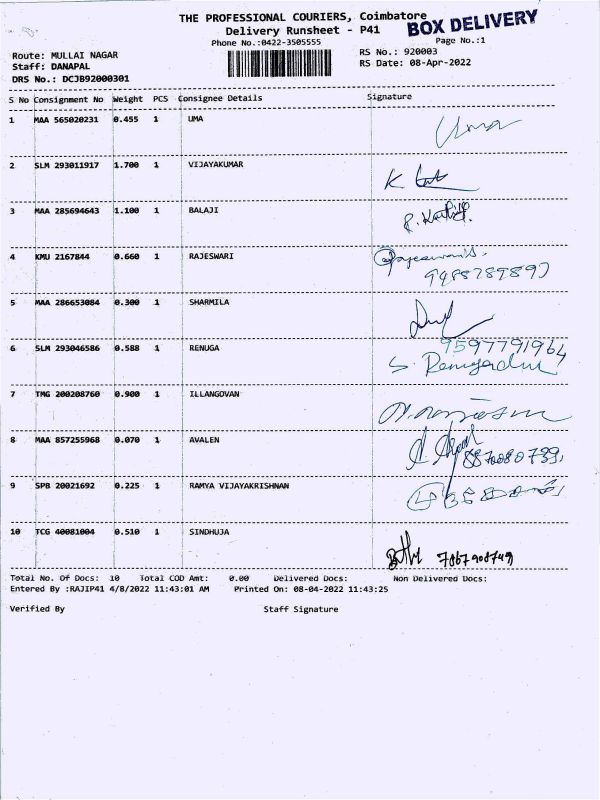 THE PROFESSIONAL COURIERS, Coimbatore
BOX DELIVERY
Delivery Runsheet - P41
Phone No.:0422-3505555
Page No.:1
Route: MULLAI NAGAR
RS No.: 920003
Staff: DANAPAL
RS Date: 08-Apr-2022
DRS No.: DCJB92000301
S No Consignment No Weight PCS Consignee Details Signature
1 MAA 565020231 0.455 1 UMA Uma
2 SLM 293011917 1.700 1 VIJAYAKUMAR K
3 MAA 285694643 1.100 1 BALAJI
4 KMU 2167844 0.660 1 RAJESWARI Rajeswari
9488789897
5 MAA 286653084 0.300 1 SHARMILA
6 SLM 293046586 0.588 1 RENUGA 9597791964
S
7 TMG 200208760 0.900 1 ILLANGOVAN
8 MAA 857255968 0.070 1 AVALEN
9 SPB 20021692 0.225 1 RAMYA VIJAYAKRISHNAN
10 TCG 40081004 0.510 1 SINDHUJA
Total No. Of Docs: 10 Total COD Amt: 0.00 Delivered Docs: Non Delivered Docs:
Entered By :RAJIP41 4/8/2022 11:43:01 AM Printed On: 08-04-2022 11:43:25
Verified By Staff Signature